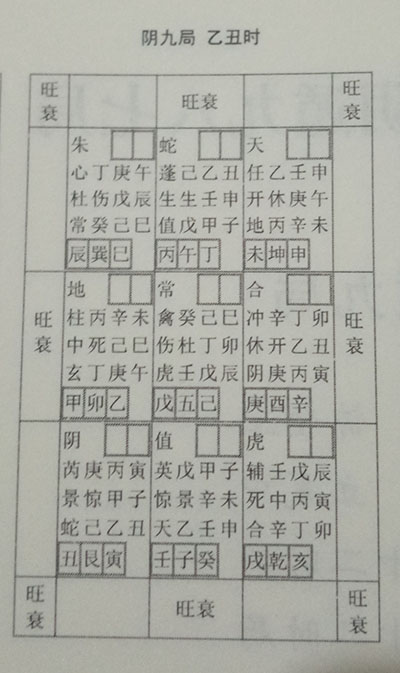 阴九局 乙丑时
旺衰 旺衰 旺衰
朱 蛇 天
心丁庚午 蓬己乙丑 任乙壬申
杜伤戊辰 生生壬申 开休庚午
常癸己巳 值戊甲子 地丙辛未
辰巽巳 丙午丁 未坤申
地 常 合
柱丙辛未 禽癸己巳 冲辛丁卯
旺衰 中死己巳 伤杜丁卯 休开乙丑 旺衰
玄丁庚午 虎壬戊辰 阴庚丙寅
甲卯乙 戊五己 庚酉辛
阴 值 虎
芮庚丙寅 英戊甲子 辅壬戊辰
景惊甲子 惊景辛未 死中丙寅
蛇己乙丑 天乙壬申 合辛丁卯
丑艮寅 壬子癸 戌乾亥
旺衰 旺衰 旺衰